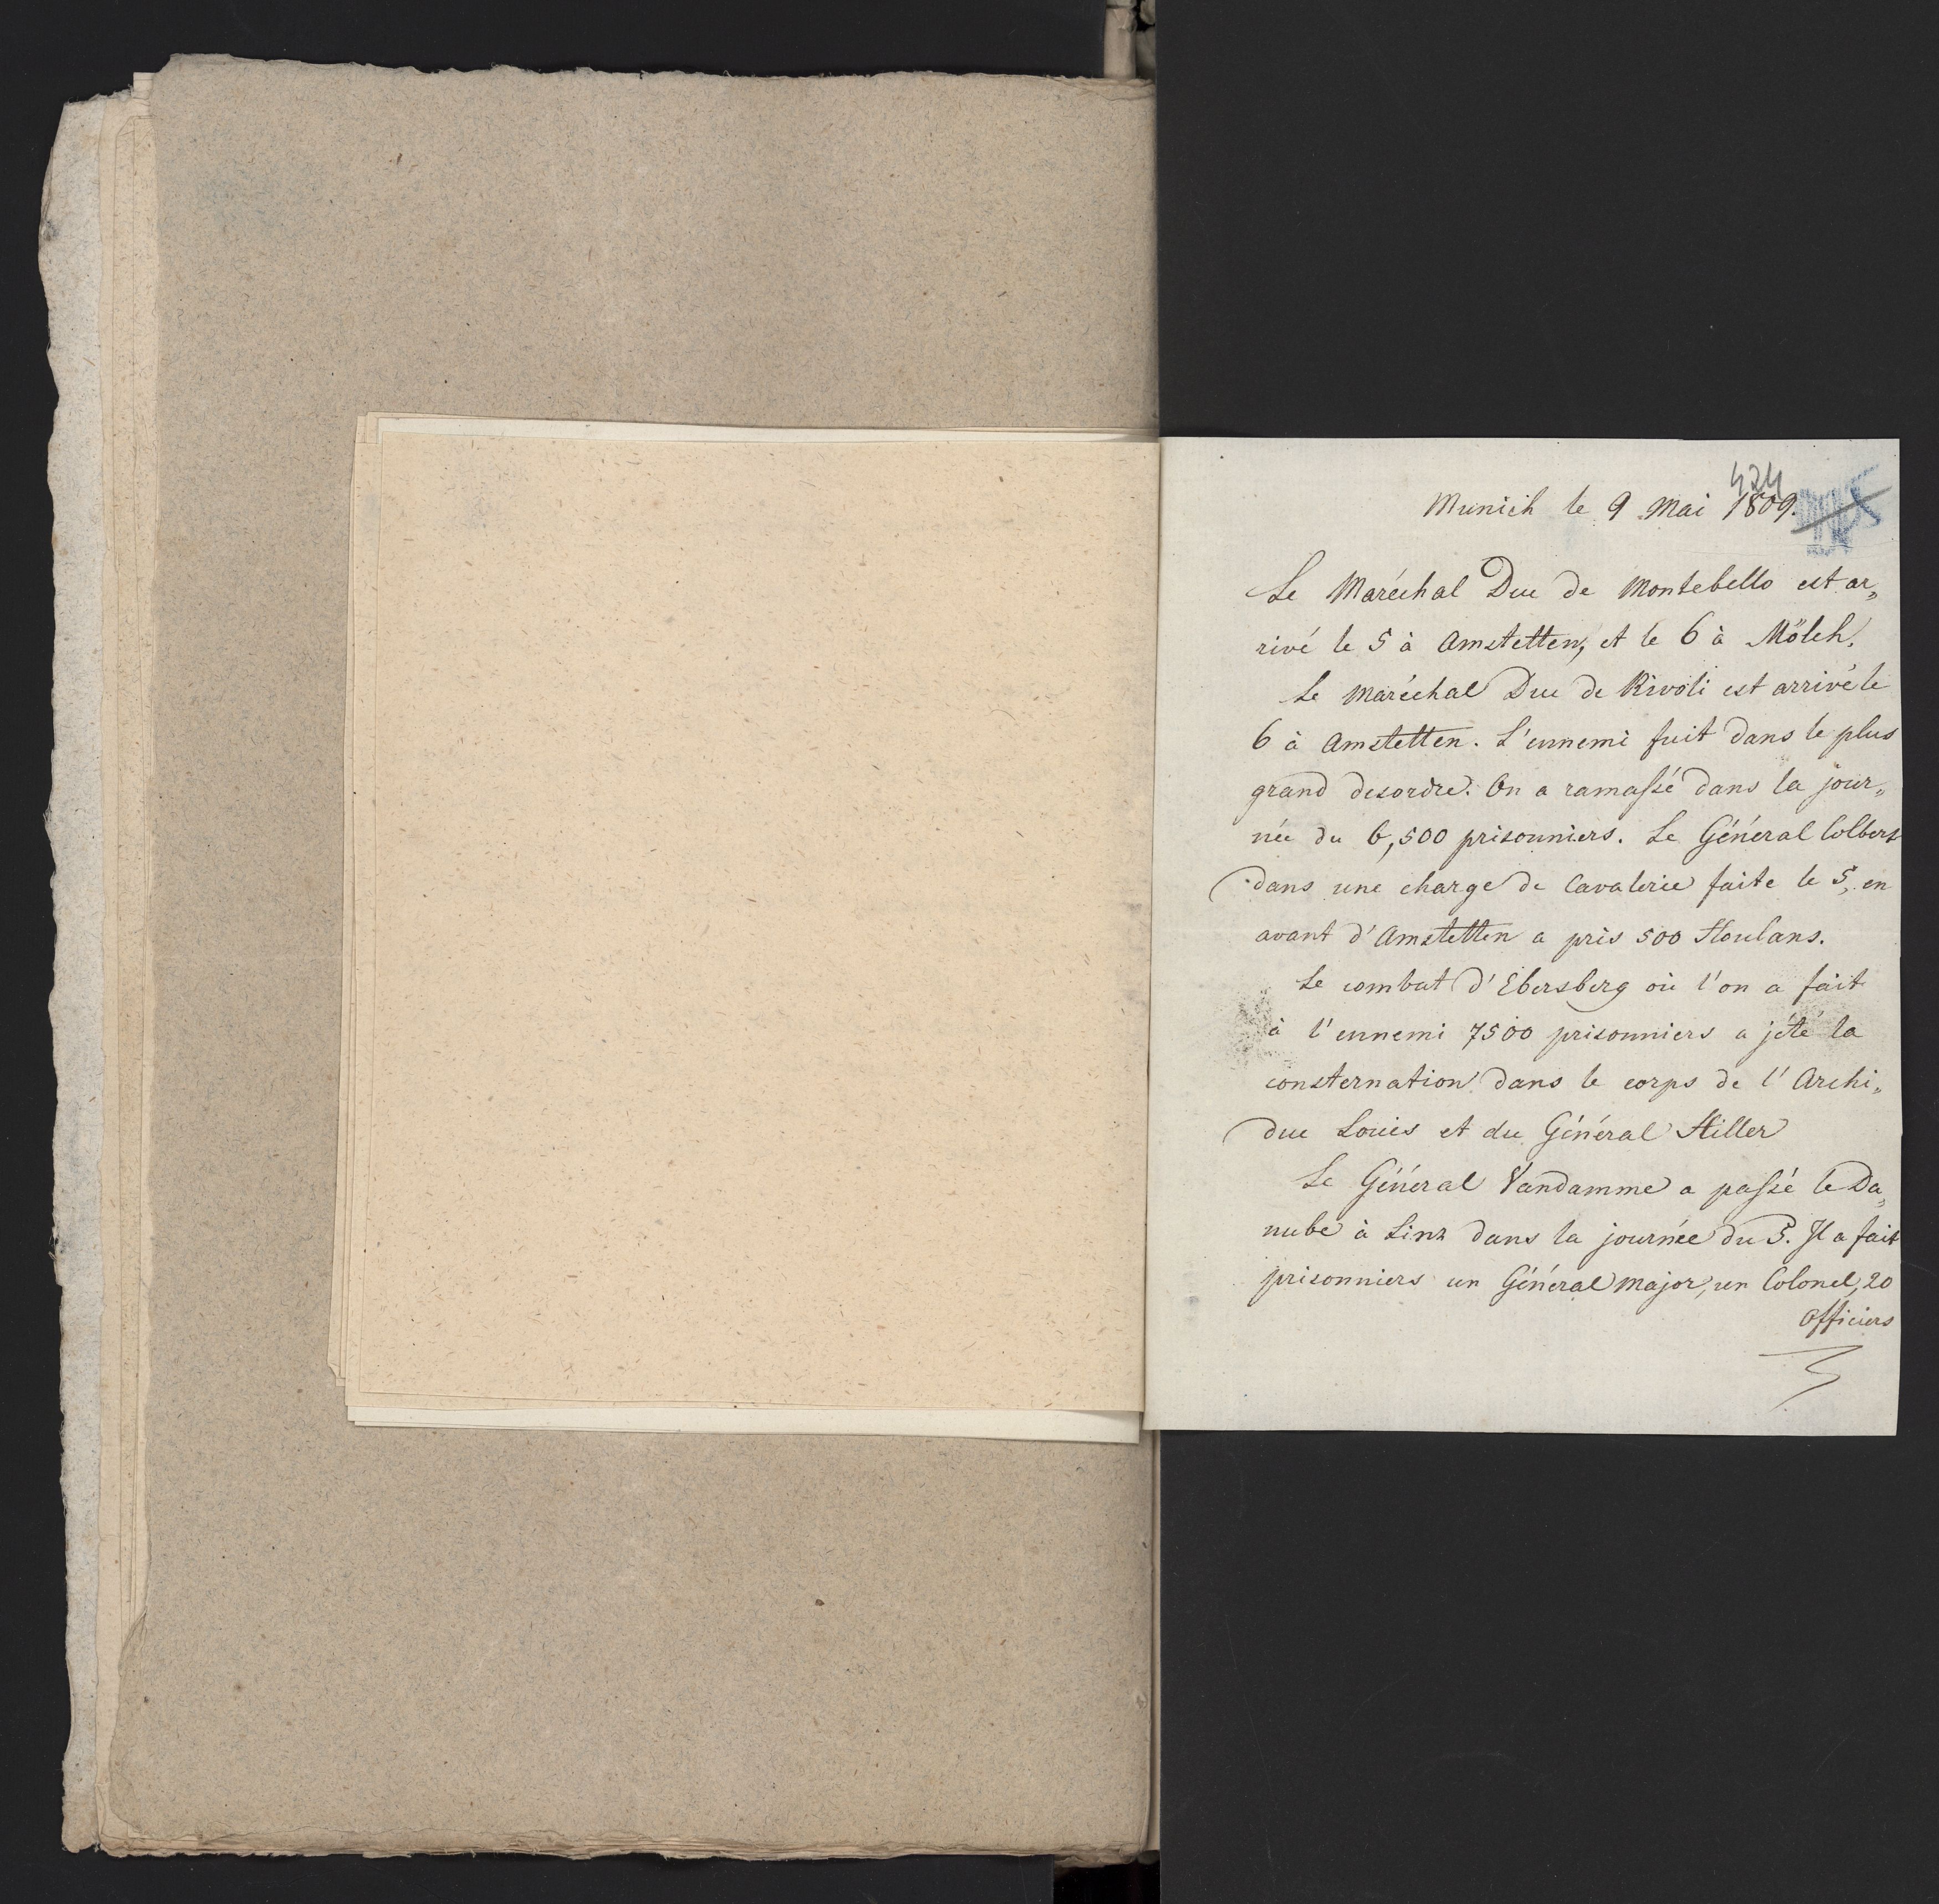 424
Munich le 9 Mai 1809.
Le Maréchal Duc de Montebello est ar„
rivé le 5 à Amstetten, et le 6 à Mölck.
Le Maréchal Duc de Rivoli est arrivé le
6 à Amstetten. L'ennemi fuit dans le plus
grand desordre. On a ramaſsé dans la jour„
née du 6, 500 prisonniers. Le Général Colbert
dans une charge de Cavalerie faite le 5, en
avant d'Amstetten a pris 500 Houlans.
Le combat d'Ebersberg où l'on a fait
à l'ennemi 7500 prisonniers a jété la
consternation dans le corps de l'Archi„
duc Louis et du Général Hiller
Le Général Vandamme a paſsé le Da„
nube à Linz dans la journée du 5. Il a fait
prisonniers un Général Major, un Colonel, 20
Officiers